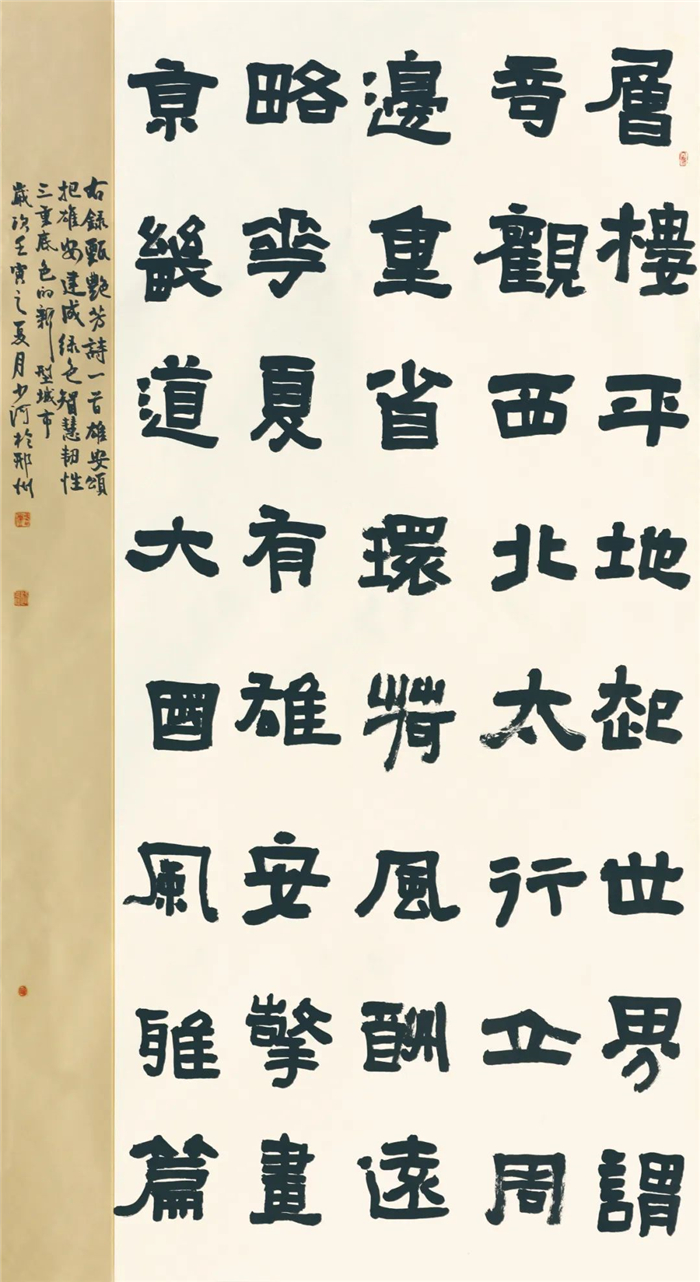 層樓平地起世界謂
奇觀西北太行立周
邊重省環荷風酬遠
略華夏有雄安擎畫
亰畿道大國風雅篇
右録甄艷芳詩一首雄安頌
把雄安建成绿色智慧韌性
三重底色的新型城市
歲次壬寅之夏月少河於邢州